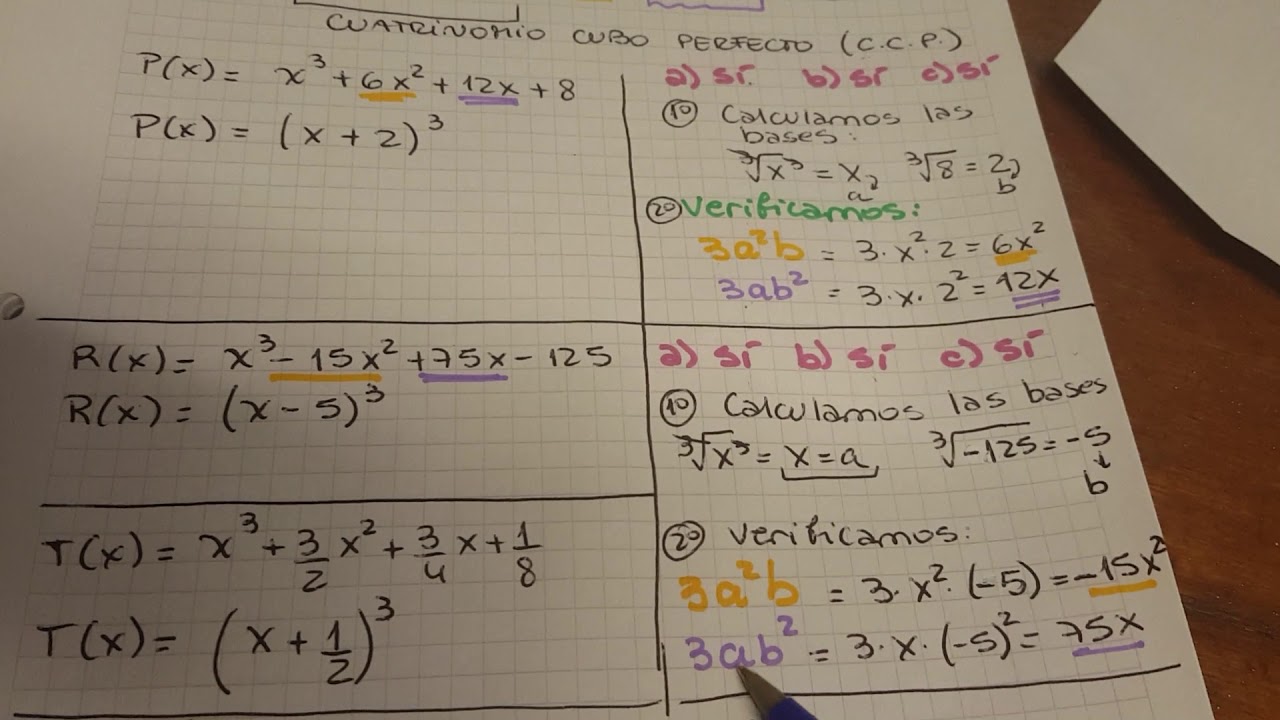 CUATRINOMIO CUBO PERFECTO (C.C.P.)
P(x) = x³ + 6x² + 12x + 8
P(x) = (x + 2)³
a) sí. b) sí c) sí
1º Calculamos las
bases:
∛x³ = x, ∛8 = 2,
a b
2º Verificamos:
3a²b = 3. x². 2 = 6x²
3ab² = 3. x. 2² = 12x
R(x) = x³ - 15x² + 75x - 125
R(x) = (x - 5)³
a) sí b) sí c) sí
1º Calculamos las bases
∛x³ = x = a ∛-125 = -5
↓
b
2º Verificamos:
3a²b = 3. x². (-5) = -15x²
3ab² = 3. x. (-5)² = 75x
T(x) = x³ + 3/2 x² + 3/4 x + 1/8
T(x) = (x + 1/2)³